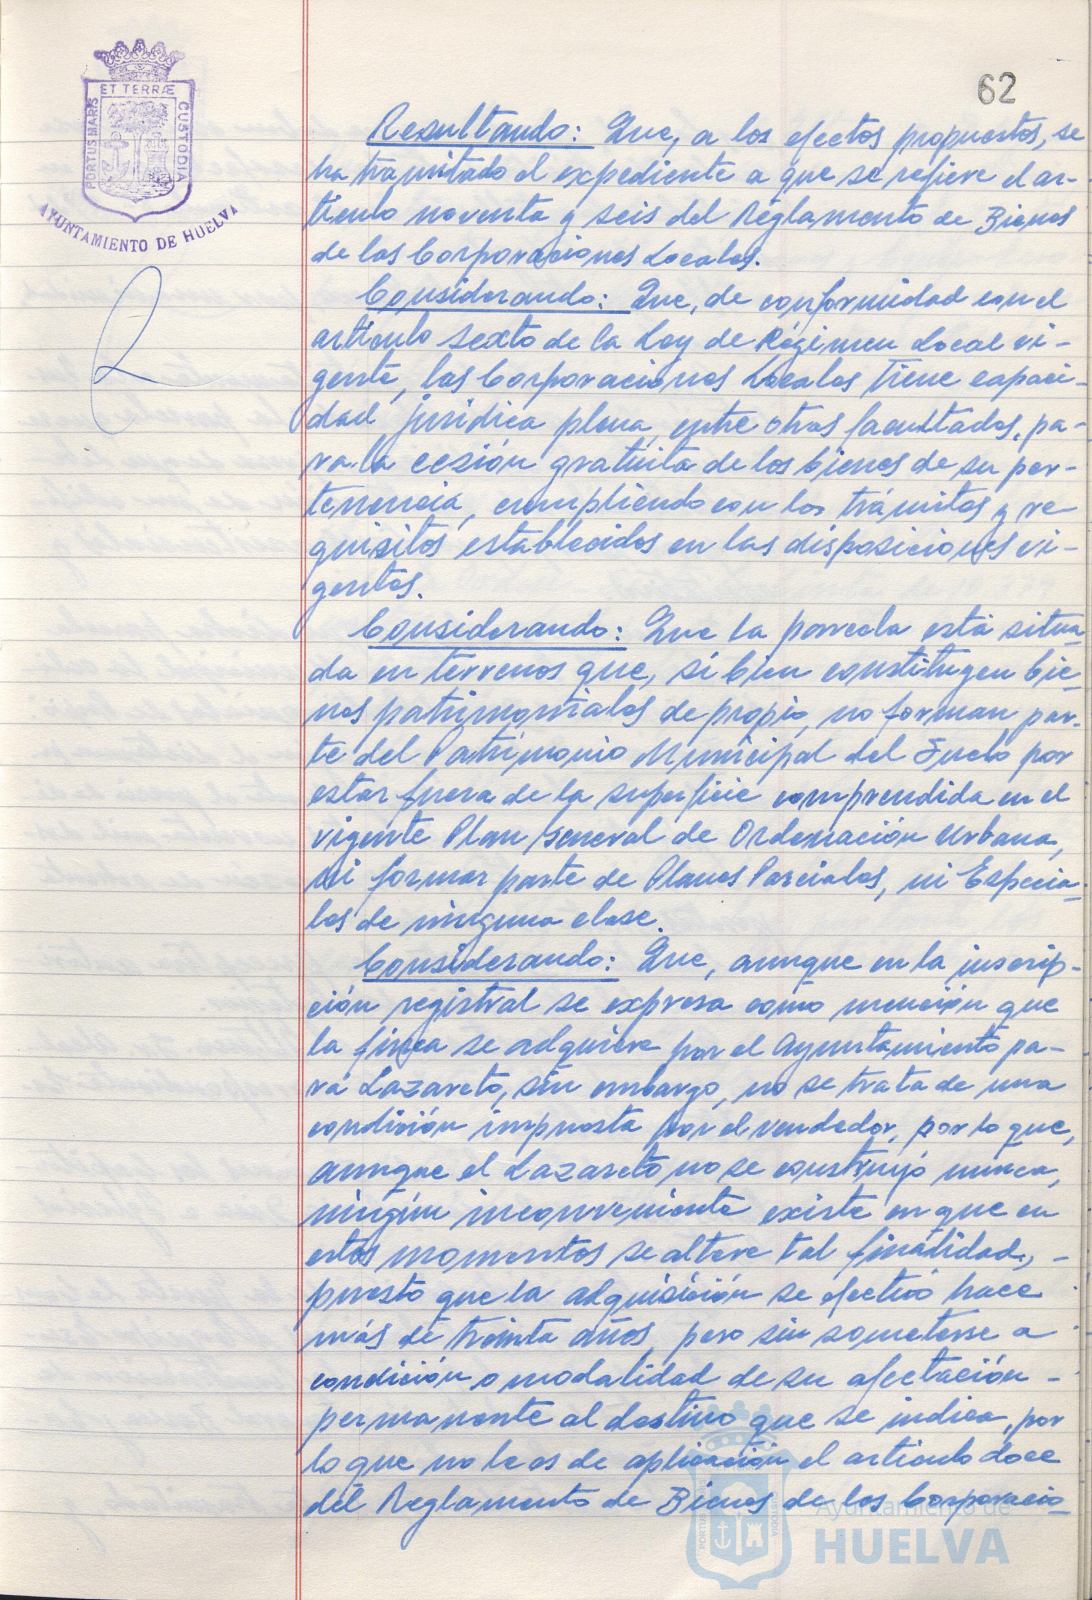 62
ET TERRÆ
PORTUS MARIS
CUSTODIA
AYUNTAMIENTO DE HUELVA
Resultando: Que, a los efectos propuestos, se
ha tramitado el expediente a que se refiere el ar-
tículo noventa y seis del Réglamento de Bienes
de las Corporaciones Locales.
Considerando: Que, de conformidad con el
artículo sexto de la Ley de Régimen Local vi-
gente, las Corporaciones Locales tiene capaci-
dad jurídica plena, entre otras facultades, pa-
ra la cesión gratuita de los bienes de su per-
tenencia, cumpliendo con los trámites y re-
quisitos establecidos en las disposiciones vi-
gentes.
Considerando: Que la parcela está situa-
da en terrenos que, si bien constituyen bie-
nes patrimoniales de propio, no forman par-
te del Patrimonio Municipal del Suelo por
estar fuera de la superficie comprendida en el
vigente Plan General de Ordenación Urbana,
ni formar parte de Planes Parciales, ni Especia-
les de ninguna clase.
Considerando: Que, aunque en la inscrip-
ción registral se expresa como mención que
la finca se adquiere por el Ayuntamiento pa-
ra Lazareto, sin embargo, no se trata de una
condición impuesta por el vendedor, por lo que,
aunque el Lazareto no se construyó nunca,
ningún inconveniente existe en que en
estos momentos se altere tal finalidad, -
puesto que la adquisición se efectuó hace
más de treinta años, pero sin someterse a
condición o modalidad de su afectación -
permanente al destino que se indica, por
lo que no le es de aplicación el artículo doce
del Reglamento de Bienes de las Corporacio-
Ayuntamiento de
HUELVA